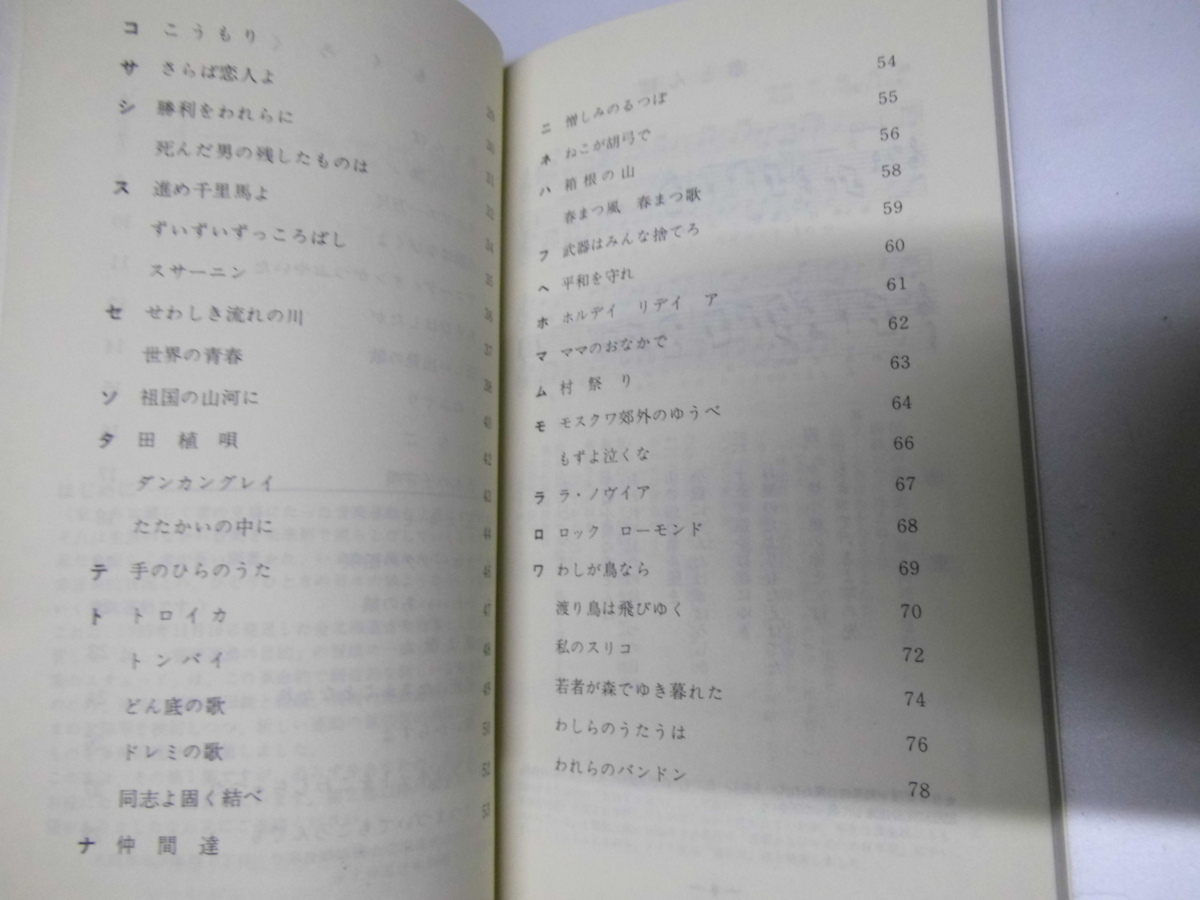 コ こうもり 29
サ さらば恋人よ 30
シ 勝利をわれらに 31
死んだ男の残したものは 32
ス 進め千里馬よ 34
ずいずいずっころばし 35
スサーニン 36
セ せわしき流れの川 37
世界の青春 39
ソ 祖国の山河に 40
タ 田植唄 42
ダンカングレイ 43
たたかいの中に 44
テ 手のひらのうた 46
ト トロイカ 47
トンバイ 48
どん底の歌 49
ドレミの歌 50
同志よ固く結べ 52
ナ 仲間達 53
ニ 憎しみのるつぼ 54
ネ ねこが胡弓で 55
ハ 箱根の山 56
春まつ風 春まつ歌 58
フ 武器はみんな捨てろ 59
ヘ 平和を守れ 60
ホ ホルディ リディ ア 61
マ ママのおなかで 62
ム 村祭り 63
モ モスクワ郊外のゆうべ 64
もずよ泣くな 66
ラ ラ・ノヴィア 67
ロ ロック ローモンド 68
ワ わしが鳥なら 69
渡り鳥は飛びゆく 70
私のスリコ 72
若者が森でゆき暮れた 74
わしらのうたうは 76
われらのバンドン 78